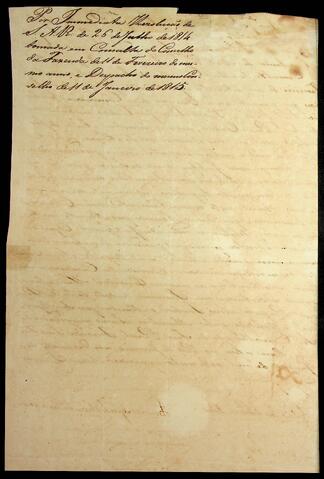 Por Immediata Rezolução de
S. A. R. de 26 de Julho de 1814
tomada em Consulta do Conselho
da Fazenda de 11 de Fevereiro do mes-
mo anno, e Despacho do mesmo Con-
selho de 11 de Janeiro de 1815.